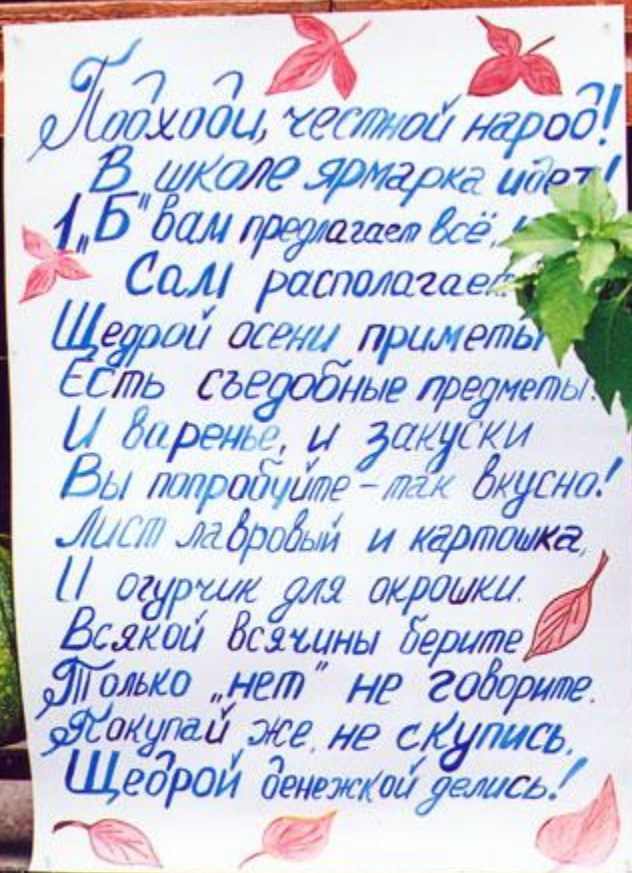 Подходи, честной народ!
В школе ярмарка идет!
1„Б" вам предлагает всё,
Сам располагает
Щедрой осени приметы
Есть съедобные предметы.
И варенье, и закуски
Вы попробуйте – так вкусно!
Лист лавровый и картошка,
И огурчик для окрошки.
Всякой всячины берите
Только „нет" не говорите.
Покупай же, не скупись,
Щедрой денежкой делись!